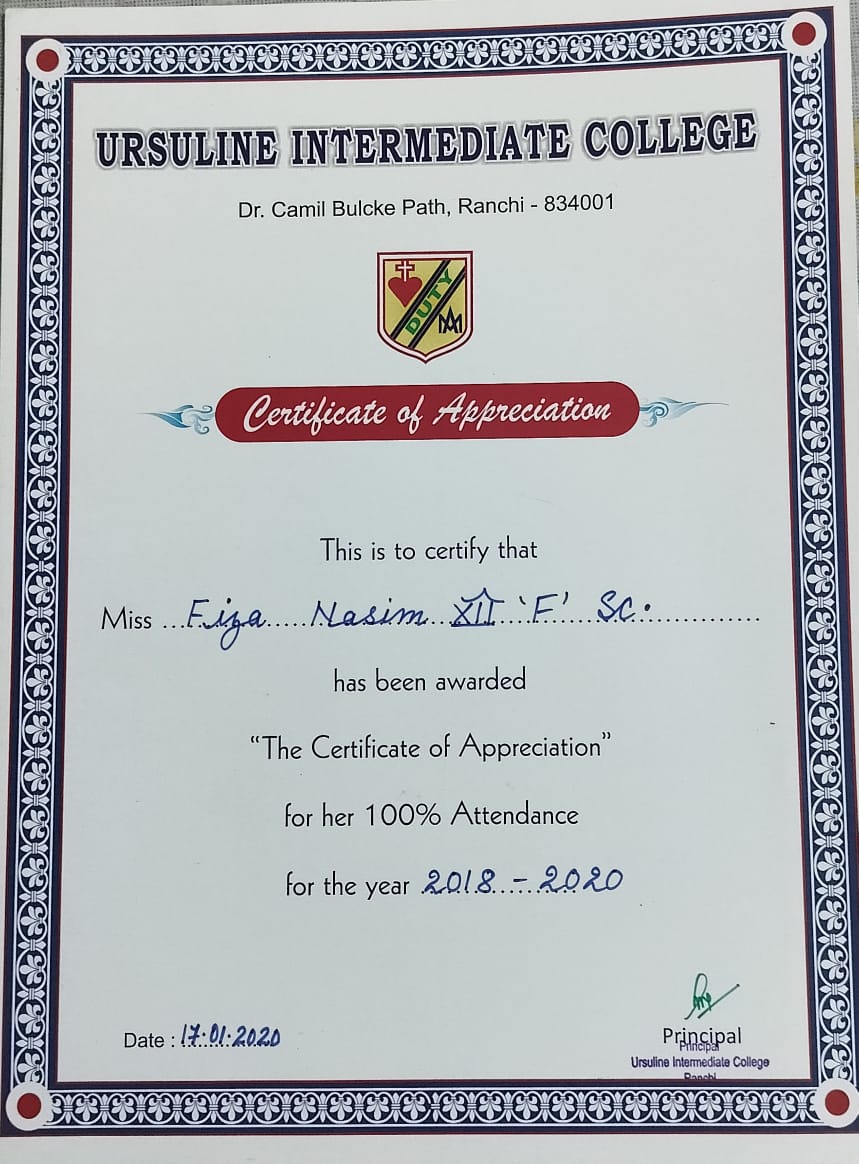 URSULINE INTERMEDIATE COLLEGE
Dr. Camil Bulcke Path, Ranchi - 834001
DUTY
Certificate of Appreciation
This is to certify that
Miss ...Fiza.....Nasim...XII..'F'...SC...............
has been awarded
“The Certificate of Appreciation”
for her 100% Attendance
for the year 2018 - 2020
Date : 17.01.2020
Principal
Principal
Ursuline Intermediate College
Ranchi